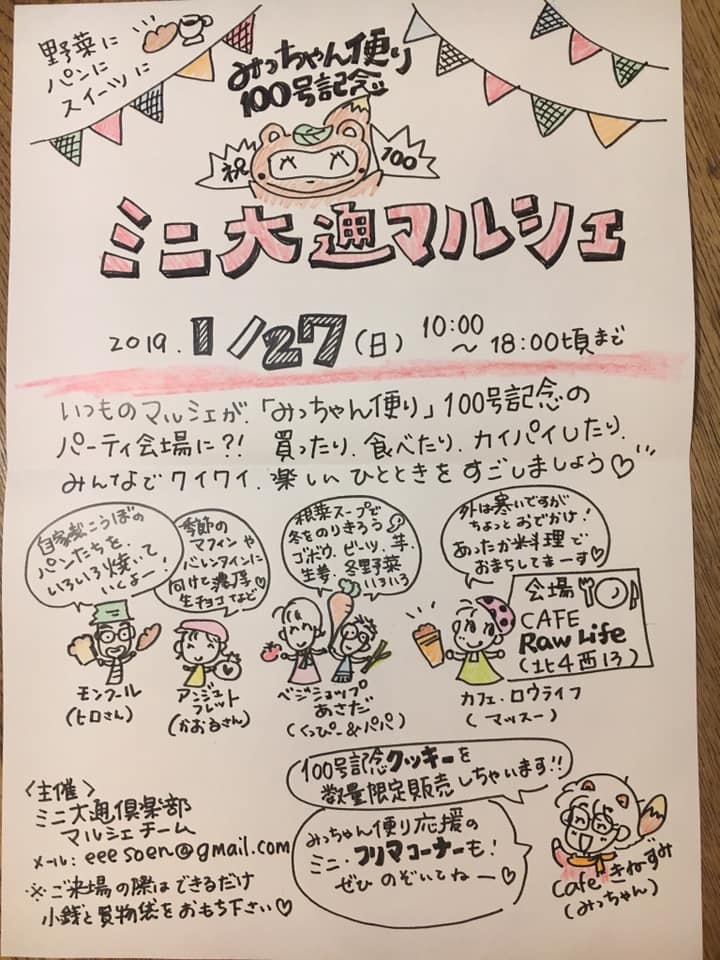 野菜に
パンに
スイーツに
みっちゃん便り
100号記念
祝
100
ミニ大通マルシェ
2019. 1/27(日) 10:00
～18:00頃まで
いつものマルシェが、「みっちゃん便り」100号記念の
パーティ会場に?! 買ったり、食べたり、カイパイしたり、
みんなでワイワイ、楽しいひとときをすごしましょう♡
自家製こうぼの
パンたちを、
いろいろ焼いて
いくよー!
季節の
マフィンや
バレンタインに
向けて濃厚♡
生チョコなど
根菜スープで
冬をのりきろう
ゴボウ、ビーツ、芋、
生姜、冬野菜
いろいろ
外は寒いですが
ちょっとおでかけ!
あったか米料理で
おまちしてまーす♡
会場
CAFE
Raw Life
(北4西13)
モンクール
(ヒロさん)
アンジュ
フレット
(かおるさん)
ベジショップ
あさだ
(くっぴー&パパ)
カフェ・ロウライフ
(マッスー)
100号記念クッキーを
数量限定販売しちゃいます!!
<主催>
ミニ大通倶楽部
マルシェチーム
メール: eeesoen@gmail.com
※ご来場の際はできるだけ
小銭と買物袋をおもち下さい♡
みっちゃん便り応援の
ミニ・フリマコーナーも!
ぜひ のぞいてねー♡
Cafe きねずみ
(みっちゃん)